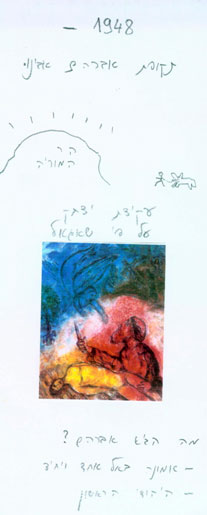 1948 -
תקופת אברהם אבינו
הר
המוריה
עקידת יצחק
על פי שאגאל
מה הביא אברהם?
- אמונה באל אחד ויחיד
- היהודי הראשון